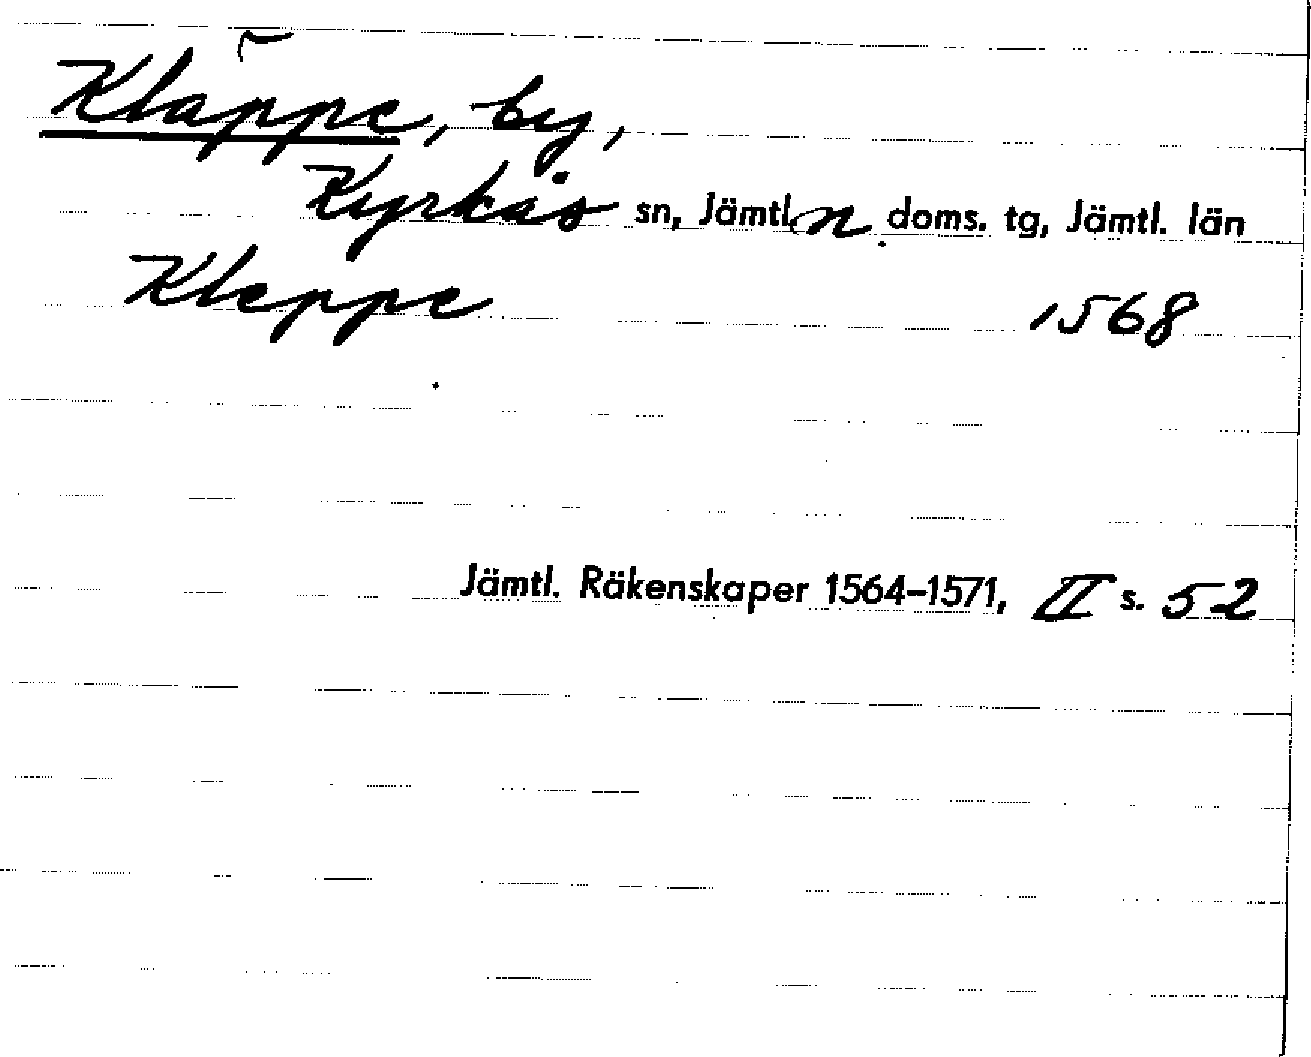 Kläppe, by,
Kyrkås sn, Jämtl. n doms. tg, Jämtl. län
Kleppe 1568
Jämtl. Räkenskaper 1564-1571, II s. 52